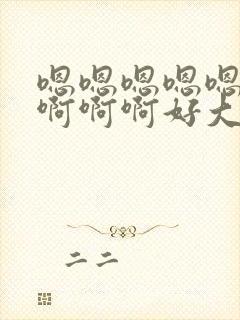 嗯嗯嗯嗯嗯
啊啊啊好大
二二